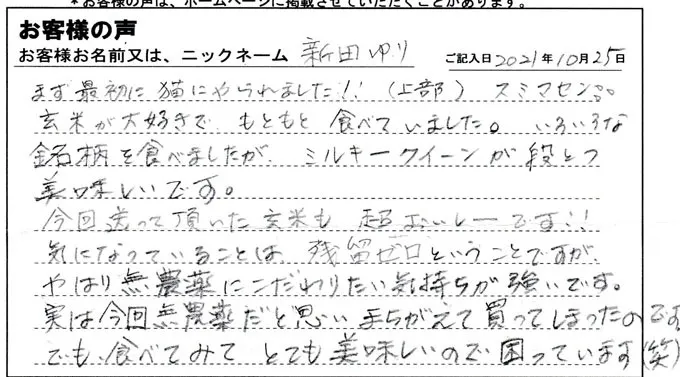 *お客様の声は、ホームページに掲載させていただくことがあります。
お客様の声
お客様お名前又は、ニックネーム 新田ゆり ご記入日 2021年10月25日
まず最初に猫にやられました!! (上部) スミマセン。。。
玄米が大好きで もともと食べていました。いろいろな
銘柄を食べましたが、ミルキークイーンが段とつ
美味しいです。
今回送って頂いた玄米も 超おいしーです!!
気になっていることは 残留ゼロということですが、
やはり無農薬にこだわりたい気持ちが強いです。
実は今回無農薬だと思い まちがえて買ってしまったのです
でも、食べてみて とても美味しいので困っています(笑)